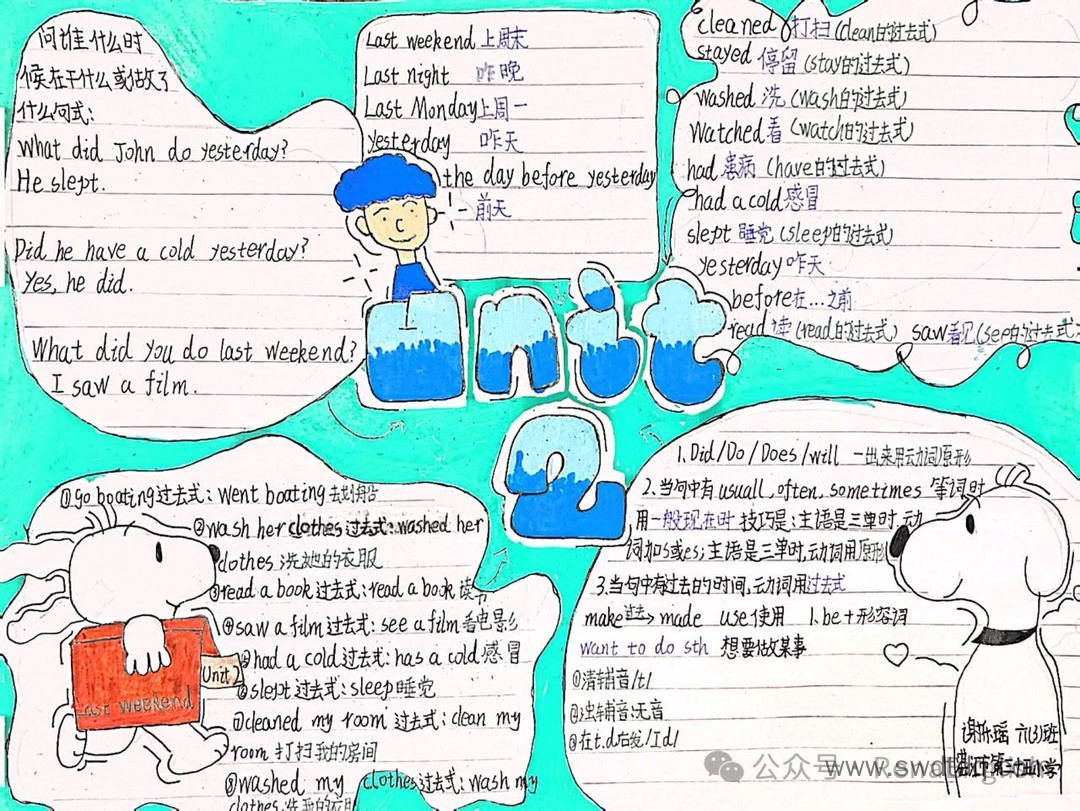 问谁什么时
候在干什么或做了
什么句式:
What did John do yesterday?
He slept.
Did he have a cold yesterday?
Yes, he did.
What did you do last weekend?
I saw a film.
Last weekend 上周末
Last night 昨晚
Last Monday 上周一
yesterday 昨天
the day before yesterday
前天
cleaned 打扫 (clean的过去式)
stayed 停留 (stay的过去式)
washed 洗 (wash的过去式)
Watched 看 (watch的过去式)
had 患病 (have的过去式)
had a cold 感冒
slept 睡觉 (sleep的过去式)
yesterday 昨天
before 在...之前
read 读 (read的过去式) saw 看见 (see的过去式)
Unit
2
①go boating过去式: went boating 去划船
②wash her clothes 过去式: washed her
clothes 洗她的衣服
③read a book 过去式: read a book 读书
④saw a film 过去式: see a film 看电影
⑤had a cold 过去式: has a cold 感冒
⑥slept 过去式: sleep 睡觉
⑦cleaned my room 过去式: clean my
room 打扫我的房间
⑧washed my clothes 过去式: wash my
clothes 洗我的衣服
Unit 2
Last weekend
1. Did/Do/Does/will 一出来用动词原形
2. 当句中有 usuall, often, sometimes 等词时
,用一般现在时 技巧是: 主语是三单时, 动
词加s或es; 主语是三单时, 动词用原形
3. 当句中有过去的时间, 动词用过去式
make 过去→ made use 使用 1. be + 形容词
want to do sth 想要做某事
①清辅音/t/
②浊辅音:无音
③在t.d后发/Id/
六(3)班
公众号
www.swd